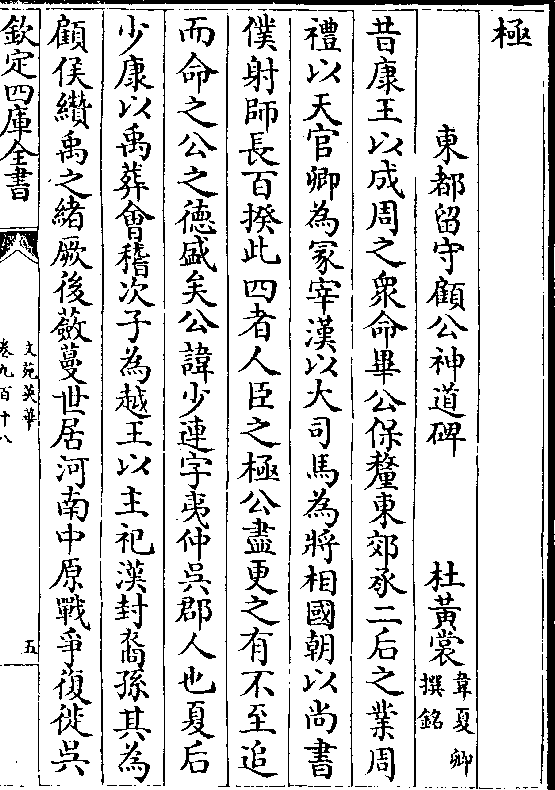 極
東都留守顧公神道碑 杜黃裳 韋夏卿撰銘
昔康王以成周之衆命畢公保釐東郊承二后之業周
禮以天官卿為冢宰漢以大司馬為將相國朝以尚書
僕射師長百揆此四者人臣之極公盡更之有不至追
而命之公之德盛矣公諱少連字夷仲吳郡人也夏后
少康以禹葬會稽次子為越王以主祀漢封裔孫其為
顧侯纘禹之緒厥後蔽蔓世居河南中原戰爭復徙吳
欽定四庫全書
文苑英華
卷九百十八
五